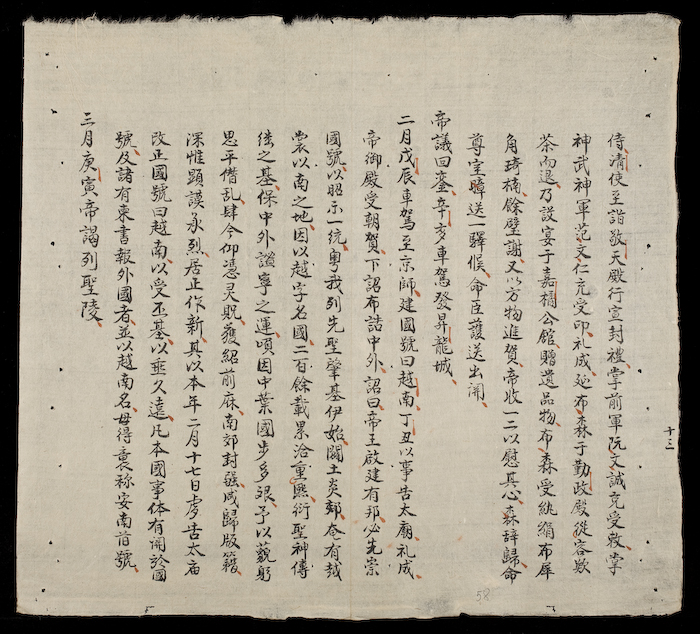 侍清使至詣敬天殿行宣封禮掌前軍阮文誠充受敕掌
神武神軍范文仁充受印礼成延布森于勤政殿從容款
茶而退乃設宴于嘉橘公館贈遺品物布森受紈絹布犀
角琦楠餘璧謝又以方物進賀帝收一二以慰其心森辞歸命
尊室暲送一驛候命臣護送出関
帝議回鑾辛亥車駕發昇龍城
二月戊辰車駕至京師建國號曰越南丁丑以事告太廟礼成
帝御殿受朝賀下詔布誥中外詔曰帝王啟建有邦必先崇
國號以昭示一統粤我列先聖肇基伊始闢土炎郊奄有越
裳以南之地因以越字名國二百餘載累洽重熙衍聖神傳
継之基保中外謐寧之運頃因中葉國步多艱予以藐躬
思平僣乱肆今仰憑灵貺獲紹前庥南郊封疆咸歸版籍
深惟顕謨承烈居正作新其以本年二月十七日虔告太庙
改正國號曰越南以受丕基以垂久遠凡本國事体有関於國
號及諸有柬書報外國者並以越南名毋得襲称安南旧號
三月庚寅帝謁列聖陵
十三
58